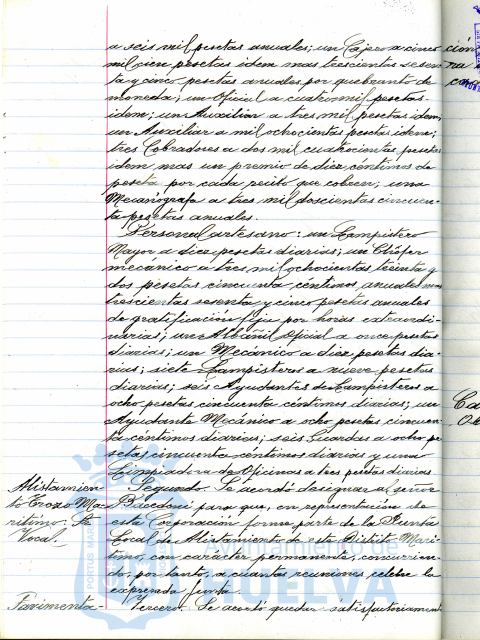 a seis mil pesetas anuales; un Cajero a cinco
mil cien pesetas idem mas trescientas sesen
ta y cinco pesetas anuales por quebranto de
moneda; un Oficial a cuatro mil pesetas
idem; un Auxiliar a tres mil pesetas idem;
un Auxiliar a mil ochocientas pesetas idem;
tres Cobradores a dos mil cuatrocientas pesetas
idem mas un premio de diez céntimos de
peseta por cada recibo que cobren; una
Mecanógrafa a tres mil doscientas cincuen-
ta pesetas anuales.
Personal artesano: un Lampistero
Mayor a diez pesetas diarias; un Chófer
mecánico a tres mil ochocientas treinta y
dos pesetas cincuenta céntimos anuales mas
trescientas sesenta y cinco pesetas anuales
de gratificación fija por horas extraordi-
narias; un Albañil Oficial a once pesetas
diarias; un Mecánico a diez pesetas dia-
rias; siete Lampisteros a nueve pesetas
diarias; seis Ayudantes de Lampisteros a
ocho pesetas cincuenta céntimos diarias; un
Ayudante Mecánico a ocho pesetas cincuen-
ta céntimos diarias; seis Guardas a ocho pe-
setas cincuenta céntimos diarias y una
Limpiadora de Oficinas a tres pesetas diarias
Alistamien-
to Trozo Ma-
rítimo.
Vocal.
Segundo. Se acordó designar al señor
para que, en representación de
esta Corporación forme parte de la Junta
Local de Alistamiento de este Distrito Marí-
timo, con carácter permanente, concurrien-
do, por tanto, a cuantas reuniones celebre la
expresada Junta
Pavimenta-
Tercero. Se acordó quedar satisfactoriamente
Ayuntamiento de
HUELVA
PORTUS MARIS